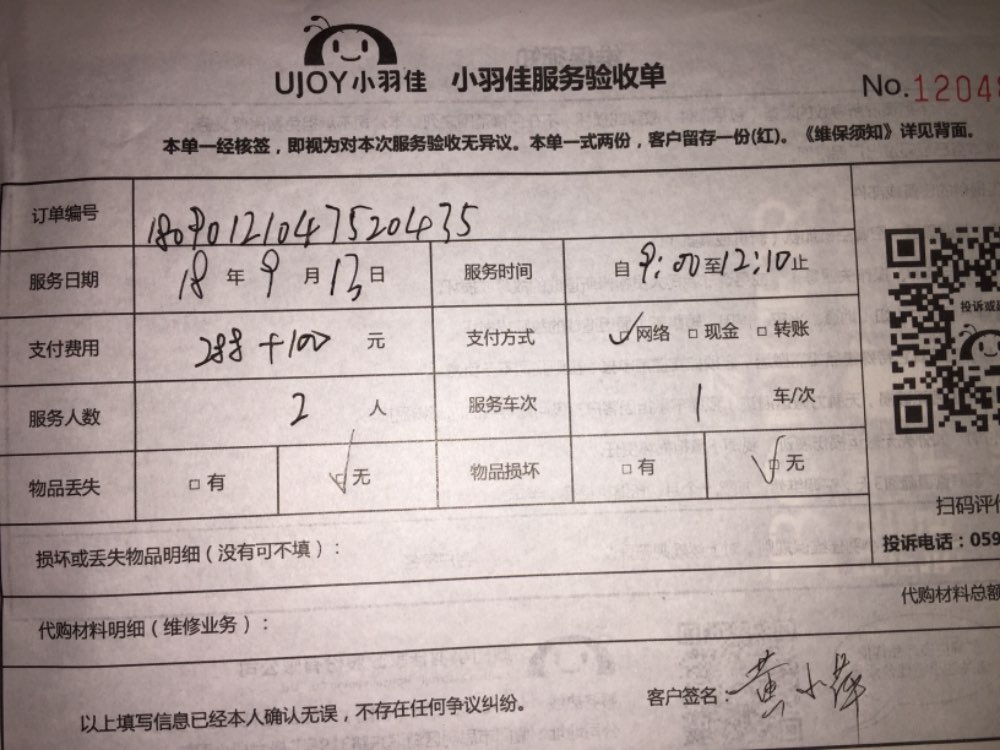 UJOY小羽佳 小羽佳服务验收单
No.1204
本单一经核签，即视为对本次服务验收无异议。本单一式两份，客户留存一份(红)。《维保须知》详见背面。
订单编号 18090121047520435
服务日期 18 年 9 月 13 日 服务时间 自 9:00 至 12:10 止
支付费用 288+100 元 支付方式 ☑网络 □现金 □转账
服务人数 2 人 服务车次 1 车/次
物品丢失 □有 ☑无 物品损坏 □有 ☑无
投诉或
扫码评
损坏或丢失物品明细（没有可不填）：
投诉电话：059
代购材料总额
代购材料明细（维修业务）：
以上填写信息已经本人确认无误，不存在任何争议纠纷。
客户签名：黄小萍